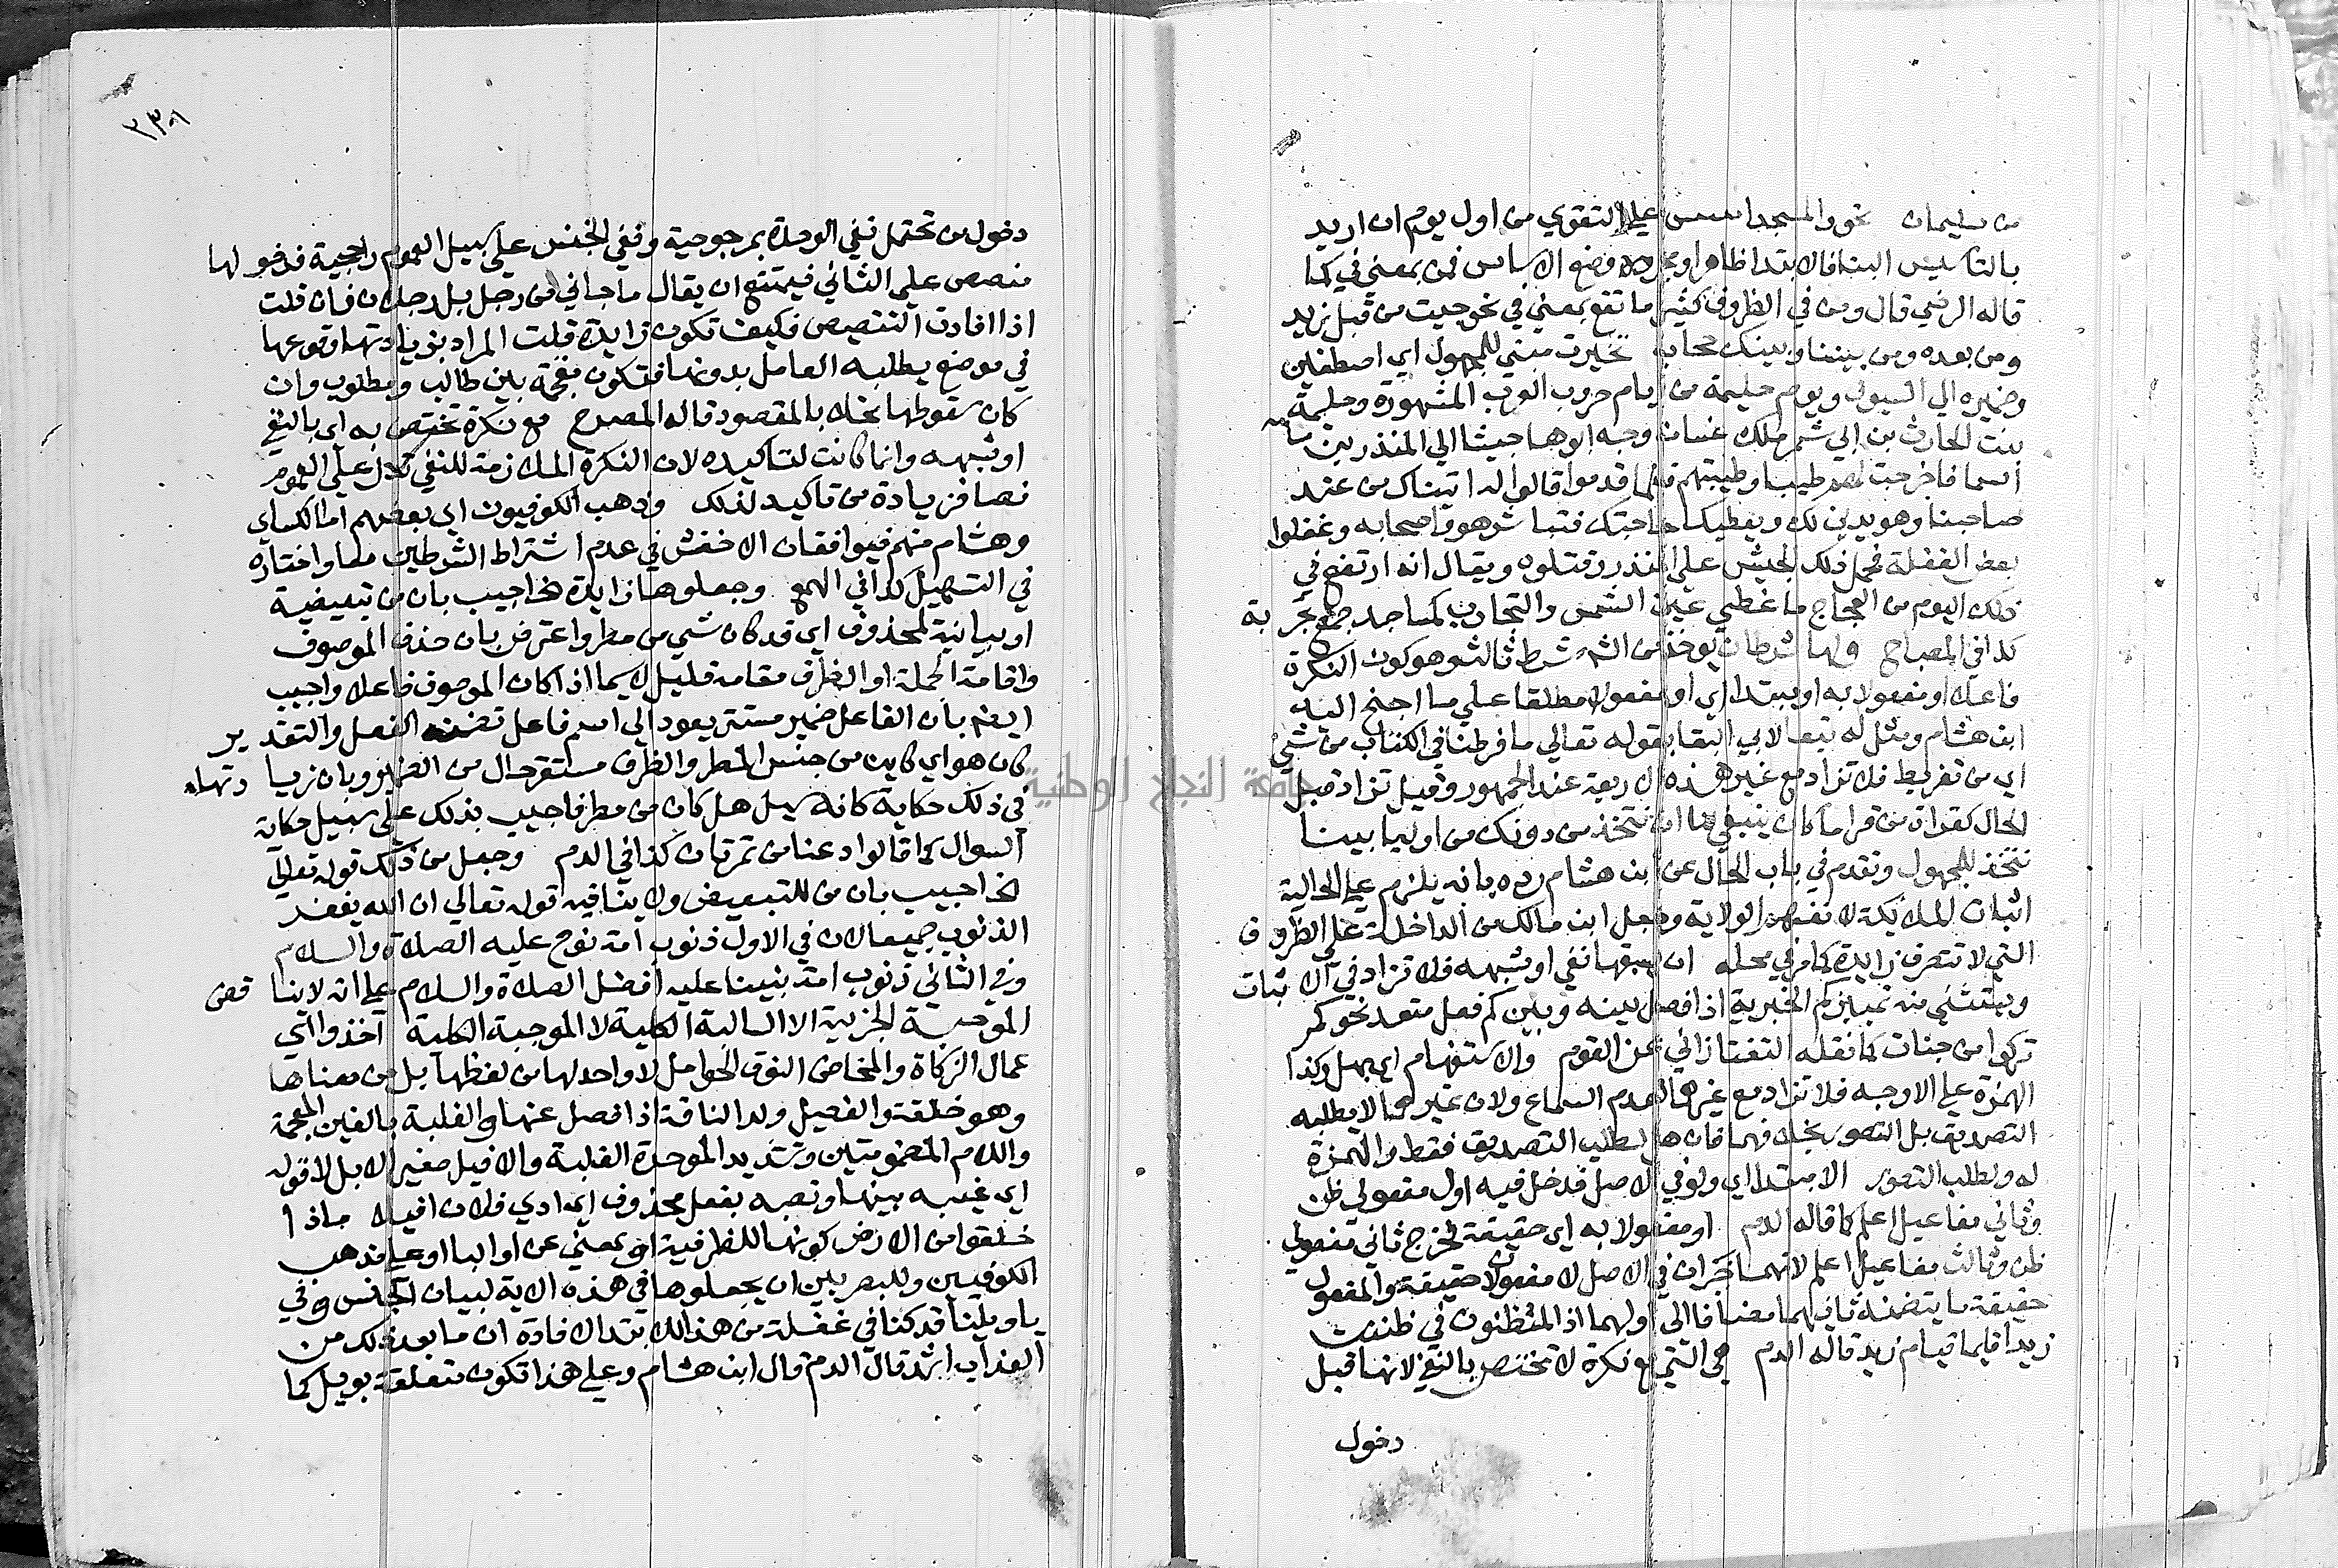 من سليمان نحو والمسجد اسس على التقوي من اول يوم ان اريد
بالتاسيس البنا فالابتدا ظاهر او مجرد وضع الاساس فمن بمعني في كما
قاله الرضي قال ومن في الظروف كثيرا ما تقع بمعني في نحو جيت من قبل زيد
ومن بعده ومن بيننا وبينك حجاب تخيرت مبني للمجهول اي اصطفين
وضميره الي السيوف ويوم حليمة من ايام حروب العرب المشهورة وحليمة
بنت الحارث بن ابي شمر ملك غسان وجه ابوها جيشا الي المنذر بن ما
السما فاخرجت لهم طيبا وطيبتهم فلما قدموا قالوا له اتيناك من عند
صاحبنا وهو يدين لك ويعطيك حاجتك فتباشر هو واصحابه وغفلوا
بعض الغفلة فحمل ذلك الجيش علي المنذر وقتلوه ويقال انه ارتفع في
ذلك اليوم من العجاج ما غطي عين الشمس والتجارب كمساجد جمع تجربة
كذا في المصباح ولها شرطان يوخذ من الشـ شرط ثالث وهو كون النكرة
فاعلا او مفعولا به او مبتدا اي او مفعولا مطلقا علي ما اجنح اليه
ابن هشام ومثل له تبعا لابي البقا بقوله تعالي ما فرطنا في الكتاب من شي
اي من تفريط فلا تزاد مع غير هذه الاربعة عند الجمهور وقيل تزاد قبل
الحال كقراة من قرا ما كان ينبغي لنا ان نتخذ من دونك من اوليا ببنا
نتخذ للمجهول وتقدم في باب الحال عن ابن هشام رده بانه يلزم علي الحالية
اثبات الملايكة لانفسهم الولاية وجعل ابن مالك من الداخلة علي الظروف
التي لا تتصرف زايدة كما مر في محله ان يسبقها نفي او شبهه فلا تزاد في الاثبات
ويستثني منه تمييز كم الخبرية اذا فصل بينه وبين كم فعل متعد نحو كم
تركوا من جنات كما نقله التفتازاني عن القوم والاستفهام اي بهل وكذا
الهمزة علي الاوجه فلا تزاد مع غيرهما لعدم السماع ولان غيرهما لا يطلب به
التصديق بل التصور بخلافهما فان هل لطلب التصديق فقط والهمزة
له ولطلب التصور الا مبتدا اي ولو في الاصل فدخل فيه اول مفعولي ظن
وثاني مفاعيل اعلم كما قاله الدم او مفعولا به اي حقيقة فخرج ثاني مفعولي
ظن وثالث مفاعيل اعلم لانهما خبران في الاصل لا مفعولان حقيقة والمفعول
حقيقة ما يتضمنه ثانيهما مضافا الي اولهما اذ المظنون في ظننت
زيدا قايما قيام زيد قاله الدم هي التي مع نكرة لا تختص بالنفي لانها قبل
دخول
٣٣٨
دخول من تحتمل نفي الوحدة بمرجوحية ونفي الجنس علي سبيل العموم راجحية فدخولها
منصص علي الثاني فيمتنع ان يقال ما جاني من رجل بل رجلان فان قلت
اذا افادت التنصيص فكيف تكون زايدة قلت المراد بزيادتها وقوعها
في موضع يطلبه العامل بدونها فتكون مقحمة بين طالب ومطلوب وان
كان سقوطها مخلا بالمقصود قاله المصرح مع نكرة تختص به اي بالنفي
او شبهه وانما كانت لتاكيده لان النكرة الملازمة للنفي تدل علي العموم
نصا فزيادة من تاكيد لذلك وذهب الكوفيون اي بعضهم اما الكساي
وهشام منهم فيوافقان الاخفش في عدم اشتراط الشرطين معا واختاره
في التسهيل كذا في الهمع وجعلوها زايدة الخ اجيب بان من تبعيضية
او بيانية لمحذوف اي قد كان شي من مطر واعترض بان حذف الموصوف
واقامة الجملة او الظرف مقامه قليل لا سيما اذا كان الموصوف فاعلا واجيب
ايضا بان الفاعل ضمير مستتر يعود الي اسم فاعل تضمنه الفعل والتقدير
كان هو اي كاين من جنس المطر والظرف مستقر حال من الضمير وبان زيادتها
في ذلك حكاية كانه سيل هل كان من مطر فاجيب بذلك علي سبيل حكاية
السوال كما قالوا دعنا من تمرتان كذا في الدم وجعل من ذلك قوله تعالي
الخ اجيب بان من للتبعيض ولا ينافيه قوله تعالي ان الله يغفر
الذنوب جميعا لان في الاول ذنوب امة نوح عليه الصلاة والسلام
وفي الثاني ذنوب امة نبينا عليه افضل الصلاة والسلام علي انه لا يناقض
الموجبة الجزية الا السالبة الكلية لا الموجبة الكلية اخذوا اي
عمال الزكاة والمخاض النوق الحوامل لا واحد لها من لفظها بل من معناها
وهو خلفة والفصيل ولد الناقة اذا فصل عنها والغلبة بالغين المعجمة
واللام المضمومتين وتشديد الموحدة الغلبة والافيل صغير الابل لا قوله
اي غيبه بينها ونصبه بفعل محذوف اي ادي فلان افيلا ماذا
خلقوا من الارض كونها للظرفية او بمعني عن او البا او علي مذهب
الكوفيين وللبصريين ان يجعلوها في هذه الاية لبيان الجنس وفي
يا ويلنا قد كنا في غفلة من هذا للابتدا لافادة ان ما بعد ذلك من
العذاب اشد قال الدم قال ابن هشام وعلي هذا تكون متعلقة بويل كما
جامعة النجاح الوطنية